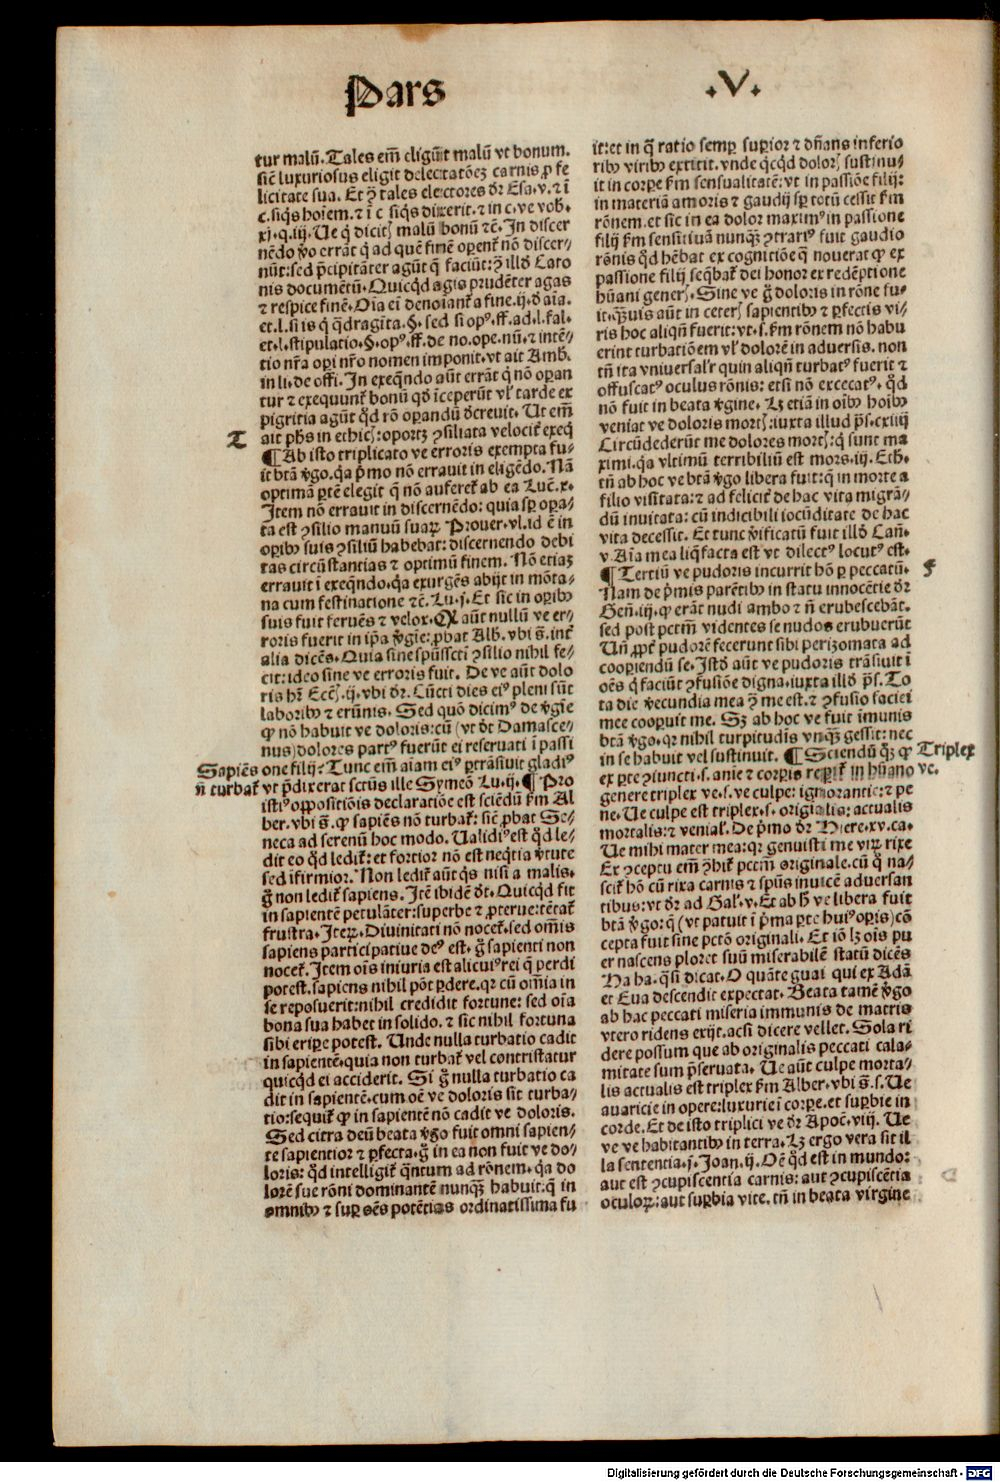 Pars .V.
tur malū. Tales em̄ eligūt malū vt bonum.
sic̄ luxuriosus eligit delectatōeꝫ carnis ꝓ fe
licitate sua. Et ꝯ̄ tales electores dr̄ Esa. v. ⁊ ī
c. siq̄s hoīem. ⁊ ī c siq̄s dixerit. ⁊ in c. ve vob̄.
xj. q. iij. Ue q̄ dicitꝭ malū bonū ⁊c̄. In discer
nēdo v̄o errāt q̄ ad quē finē operent̄ nō discer⸗
nūt: sed p̄cipitāter agūt q̄ faciūt: ꝯ̄ illd̄ Cato
nis documētū. Quicq̄d agis prudēter agas
⁊ respice finē. Oīa ei denoīant̄ a fine. ij. d̄ aīa.
et. l. si is q̄ q̄dragīta. §. sed si opꝰ. ff. ad. l. fal.
et. l. stipulatio. §. opꝰ. ff. de no. ope. nū. ⁊ intē⸗
tio nr̄a opi nr̄o nomen imponit. vt ait Amb̄.
in li. de offi. In exeq̄ndo aūt errāt q̄ nō opan
tur ⁊ exequunt̄ bonū qd̄ īceperūt vl̄ tarde ex
pigritia agūt q̄d rō opandū d̄creuit. Ut em̄
T
ait ph̄s in ethicꝭ: oportꝫ ꝯsiliata velocit̄ exeq̄
¶ Ab isto triplicato ve erroris exempta fu⸗
it btā v̄go. q̄a p̄mo nō errauit in eligēdo. Nā
optimā ꝑtē elegit q̄ nō auferet̄ ab ea Luc̄. x.
Item nō errauit in discernēdo: quia sꝑ opa⸗
ta est ꝯsilio manuū suaꝝ Prouer. vl. id ē in
opibꝰ suis ꝯsiliū habebat: discernendo debi
tas circūstantias ⁊ optimū finem. Nō etiaꝫ
errauit ī exeq̄ndo. q̄a exurgēs abijt in mōta⸗
na cum festinatione ⁊c̄. Lu. j. Et sic in opibꝰ
suis fuit feruēs ⁊ velox. Q aūt nullū ve er⸗
roris fuerit in ip̄a v̄gīe: ꝓbat Alb̄. vbi s̄. int̄
alia dicēs. Quia sine spūssctī ꝯsilio nihil fe⸗
cit: ideo sine ve erroris fuit. De ve aūt dolo
ris hr̄ Eccꝭ. ij. vbi dr̄. Cūcti dies eiꝰ pleni sūt
laboribꝰ ⁊ erūnis. Sed quō dicimꝰ de v̄gīe
ꝙ nō habuit ve doloris: cū (vt d̄t Damasce⸗
nus) dolores partꝰ fuerūt ei reseruati ī passi
Sapiēs
n̄ turbat̄
one filij? Tunc em̄ aīam eiꝰ ꝑtrāsiuit gladiꝰ
vt p̄dixerat sctūs ille Symeō Lu. ij. ¶ Pro
istiꝰ oppositiōis declaratiōe est sciēdū ẜm Al
ber. vbi s̄. ꝙ sapiēs nō turbat̄: sic̄ ꝓbat Se⸗
neca ad serenū hoc modo. Ualidiꝰ est q̄d le⸗
dit eo q̄d ledit̄: et fortior nō est neq̄tia v̄tute
sed ifirmior. Non ledit̄ aūt q̄s nisi a malis.
g̊ non ledit̄ sapiens. Itē ibidē d̄t. Quicq̄d fit
in sapientē petulāter: superbe ⁊ ꝓterue: tētat̄
frustra. Iteꝝ. Diuinitati nō nocet̄. sed om̄is
sapiens participatiue deꝰ est. g̊ sapienti non
nocet̄. Item oīs iniuria est alicuiꝰ rei q̄ perdi
potest. sapiens nihil pōt ꝑdere. qꝛ cū om̄ia in
se reposuerit: nihil credidit fortune: sed oīa
bona sua habet in solido. ⁊ sic nihil fortuna
sibi eripe potest. Unde nulla turbatio cadit
in sapientē. quia non turbat̄ vel contristatur
quicq̄d ei acciderit. Si g̊ nulla turbatio ca
dit in sapientē. cum oē ve doloris sit turba⸗
tio: sequit̄ ꝙ in sapientē nō cadit ve doloris.
Sed citra deū beata v̄go fuit omni sapien⸗
te sapientior ⁊ ꝑfecta. g̊ in ea non fuit ve do⸗
loris: q̄d intelligit̄ q̄ntum ad rōnem. q̄a do
lorē sue rōni dominantē nunqꝫ habuit: q̄ in
omnibꝰ ⁊ suꝑ oēs potētias ordinatissima fu
it: et in q̄ ratio semꝑ supior ⁊ dn̄ans inferio
ribꝰ viribꝰ extitit. vnde q̄cq̄d dolorꝭ sustinu⸗
it in corpe ẜm sensualitatē: vt in passiōe filij:
in materiā amoris ⁊ gaudij sꝑ totū cessit ẜm
rōnem. et sic in ea dolor maximꝰ in passione
filij ẜm sensitiuā nunqꝫ ꝯtrariꝰ fuit gaudio
rōnis q̄d hēbat ex cognitiōe q̄ nouerat ꝙ ex
passione filij seq̄bat̄ dei honor ex redēptione
hūani generꝭ. Sine ve g̊ doloris in rōne fu⸗
it. qꝫuis aūt in ceterꝭ sapientibꝰ ⁊ ꝑfectis vi⸗
ris hoc aliqn̄ fuerit: vt. s. ẜm rōnem nō habu
erint turbatiōem vl̄ dolorē in aduersis. non
tn̄ ita vniuersal̄r quin aliqn̄ turbatꝰ fuerit ⁊
offuscatꝰ oculus rōnis: etsi nō excecatꝰ. q̄d
nō fuit in beata v̄gine. Lꝫ etiā in oībꝰ hoībꝰ
veniat ve doloris mortꝭ: iuxta illud p̄s. cxiiij
Circūdederūt me dolores mortꝭ: q̄ sunt ma
ximi. q̄a vltimū terribiliū est mors. iij. Eth̄.
tn̄ ab hoc ve btā v̄go libera fuit: q̄ in morte a
filio visitata: ⁊ ad felicit̄ de hac vita migrā⸗
dū inuitata: cū indicibili iocūditate de hac
vita decessit. Et tunc v̄ificatū fuit illd̄ Can̄.
v. Aīa mea liq̄facta est vt dilectꝰ locutꝰ est.
¶ Tertiū ve pudoris incurrit hō ꝑ peccatū.
f
Nam de p̄mis parētibꝰ in statu innocētie dr̄
Gen̄. iij. ꝙ erāt nudi ambo ⁊ n̄ erubescebāt.
sed post pctm̄ videntes se nudos erubuerūt
Un̄ ꝓpt̄ pudorē fecerunt sibi perizomata ad
cooperiendū se. Istd̄ aūt ve pudoris trāsiuit ī
oēs q̄ faciūt ꝯfusiōe digna. iuxta illd̄ p̄s. To
ta die v̄ecundia mea ꝯ̄ me est. ⁊ ꝯfusio faciei
mee cooperuit me. Sꝫ ab hoc ve fuit īmunis
btā v̄go. qꝛ nihil turpitudīs vnqꝫ gessit: nec
in se habuit vel sustinuit. ¶ Sciendū q̊ꝫ ꝙ
Triplex
ve.
ex ꝑte ꝯiuncti. s. anīe ⁊ corpis reperit̄ in hūano
genere triplex ve. s. ve culpe: ignorantie: ⁊ pe
ne. Ue culpe est triplex. s. originalis: actualis
mortalis: ⁊ venial̄. De p̄mo dr̄ Hiere. xv. ca.
Ue mihi mater mea: qꝛ genuisti me viꝝ rixe
Ex ꝯceptu em̄ ꝯhit̄ pctm̄ originale. cū q̄ na⸗
scit̄ hō cū rixa carnis ⁊ spūs inuicē aduersan
tibus: vt dr̄ ad Gal̄. v. Et ab h̄ ve libera fuit
btā v̄go: q̄ (vt patuit ī p̄ma ꝑte huiꝰ opis) cō
cepta fuit sine pctō originali. Et iō lꝫ oīs pu
er nascens ploret suū miserabilē statū dicēs
Ha ha. q̄si dicat. O quāte guai qui ex Adā
et Eua descendit expectat. Beata tamē v̄go
ab hac peccati miseria immunis de matris
vtero ridens exijt. acsi dicere vellet. Sola ri
dere possum que ab originalis peccati cala⸗
mitate sum p̄seruata. Ue aūt culpe morta⸗
lis actualis est triplex ẜm Alber. vbi s̄. s. Ue
auaricie in opere: luxurie ī corpe. et supbie in
corde. Et de isto triplici ve dr̄ Apoc̄. viij. Ue
ve ve habitantibꝰ in terra. Lꝫ ergo vera sit il
la sententia. j. Joan. ij. Oē q̄d est in mundo:
aut est ꝯcupiscentia carnis: aut ꝯcupiscētia
oculoꝝ: aut supbia vite. tn̄ in beata virgine
Digitalisierung gefördert durch die Deutsche Forschungsgemeinschaft - DFG